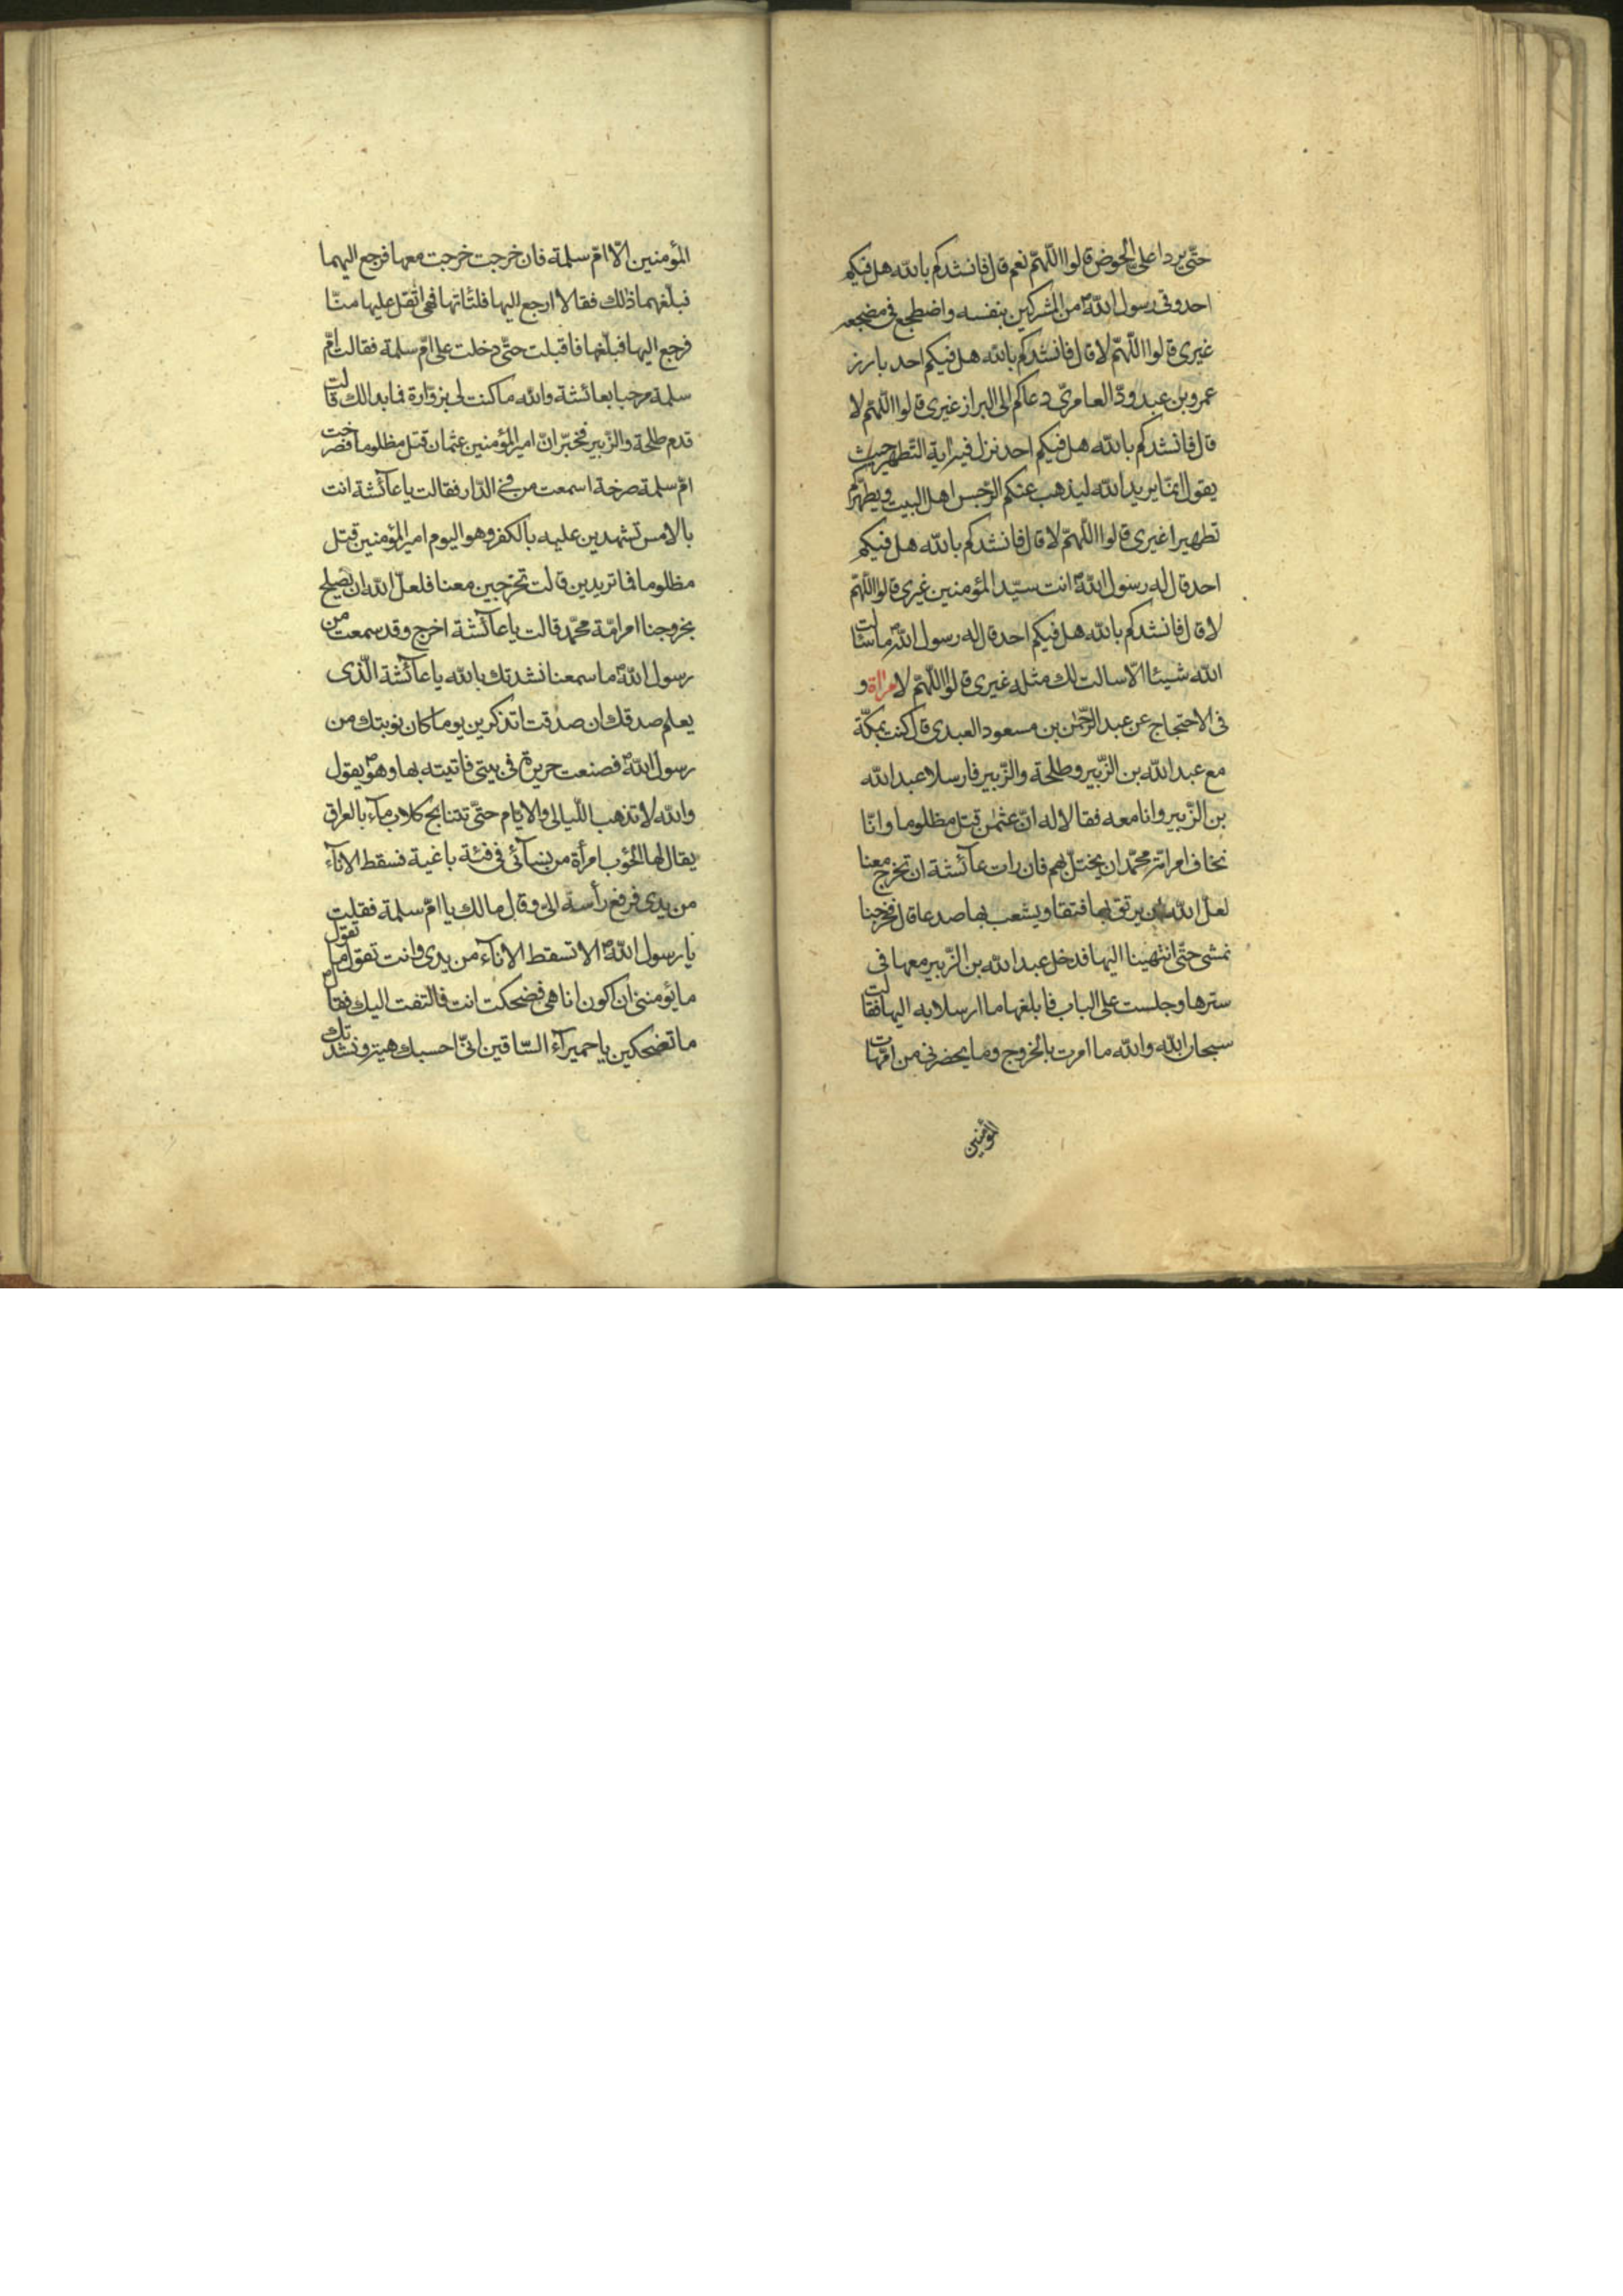 حتّى يردا علىّ الحوض قالوا اللّهمّ نعم قال فانشدكم بالله هل فيكم
احد وقى رسول اللهّ من المشركين بنفسه واضطجع فى مضجعه
غيرى قالوا اللّهمّ لا قال فانشدكم بالله هل فيكم احد بارز
عمرو بن عبد ودّ العامرىّ دعاكم الى البراز غيرى قالوا اللّهمّ لا
قال فانشدكم بالله هل فيكم احد نزل فيه اية التّطهير حيث
يقول انّما يريد الله ليذهب عنكم الرّجس اهل البيت ويطهّركم
تطهيرا غيرى قالوا اللّهمّ لا قال فانشدكم بالله هل فيكم
احد قال له رسول اللهّ انت سيّد المؤمنين غيرى قالوا اللّهمّ
لا قال فانشدكم بالله هل فيكم احد قال له رسول الله ما سئالت
الله شيئا الّا سالت لك مثله غيرى قالوا اللّهمّ لا و
فى الاحتجاج عن عبد الرّحمٰن بن مسعود العبدى قال كنت بمكّة
مع عبد الله بن الزّبير وطلحة والزّبير فارسلا عبد الله
بن الزّبير وانا معه فقالا له انّ عثمٰن قتل مظلوما وانّا
نخاف امر امّة محمّد ان يختلّ بهم فان رات عآئشة ان تخرج معنا
لعلّ الله ان يرتق بها فتقا ويشعب بها صدعا قال فخرجنا
نمشى حتّى انتهينا اليها فدخل عبد الله بن الزّبير معها فى
سترها وجلست على الباب فابلغها ما ارسلا به اليها فقالت
سبحان الله والله ما امرت بالخروج وما يحضرنى من امّهات
المؤمنين
المؤمنين الّا امّ سلمة فان خرجت خرجت معها فرجع اليهما
فبلّغهما ذلك فقالا ارجع اليها فلتاتها فهى اثقل عليها منّا
فرجع اليها فبلّغها فاقبلت حتّى دخلت على امّ سلمة فقالت امّ
سلمة مرحبا بعائشة والله ما كنت لى بزوّارة فما بدا لك قالت
قدم طلحة والزّبير فخبّر انّ امير المؤمنين عثمان قتل مظلوما فصرخت
امّ سلمة صرخة اسمعت من فى الدّار فقالت يا عآئشة انت
بالامس تشهدين عليه بالكفر وهو اليوم امير المؤمنين قتل
مظلوما فما تريدين قالت تخرجين معنا فلعلّ الله ان يصلح
بخروجنا امر امّة محمّد قالت يا عآئشة اخرج وقد سمعت من
رسول اللهّ ما سمعنا نشدتك بالله يا عآئشة الّذى
يعلم صدقك ان صدقت اتذكرين يوما كان نوبتك من
رسول اللهّ فصنعت حريرة فى بيتى فاتيته بها وهو يقول
والله لا تذهب اللّيالى والايّام حتّى تتنابح كلاب مآء بالعراق
يقال لها الحوٴب امرأة من نسآئى فى فئة باغية فسقط الانآء
من يدى فرفع رأسه الىّ وقال مالك يا امّ سلمة فقلت
يا رسول اللهّ الا تسقط الانآء من يدى وانت تقول ما تقول
ما يؤمننى ان اكون انا هى فضحكت انت فالتفت اليك فقال
ما تضحكين يا حميرآء السّاقين انّى احسبك هيه ونشدتك